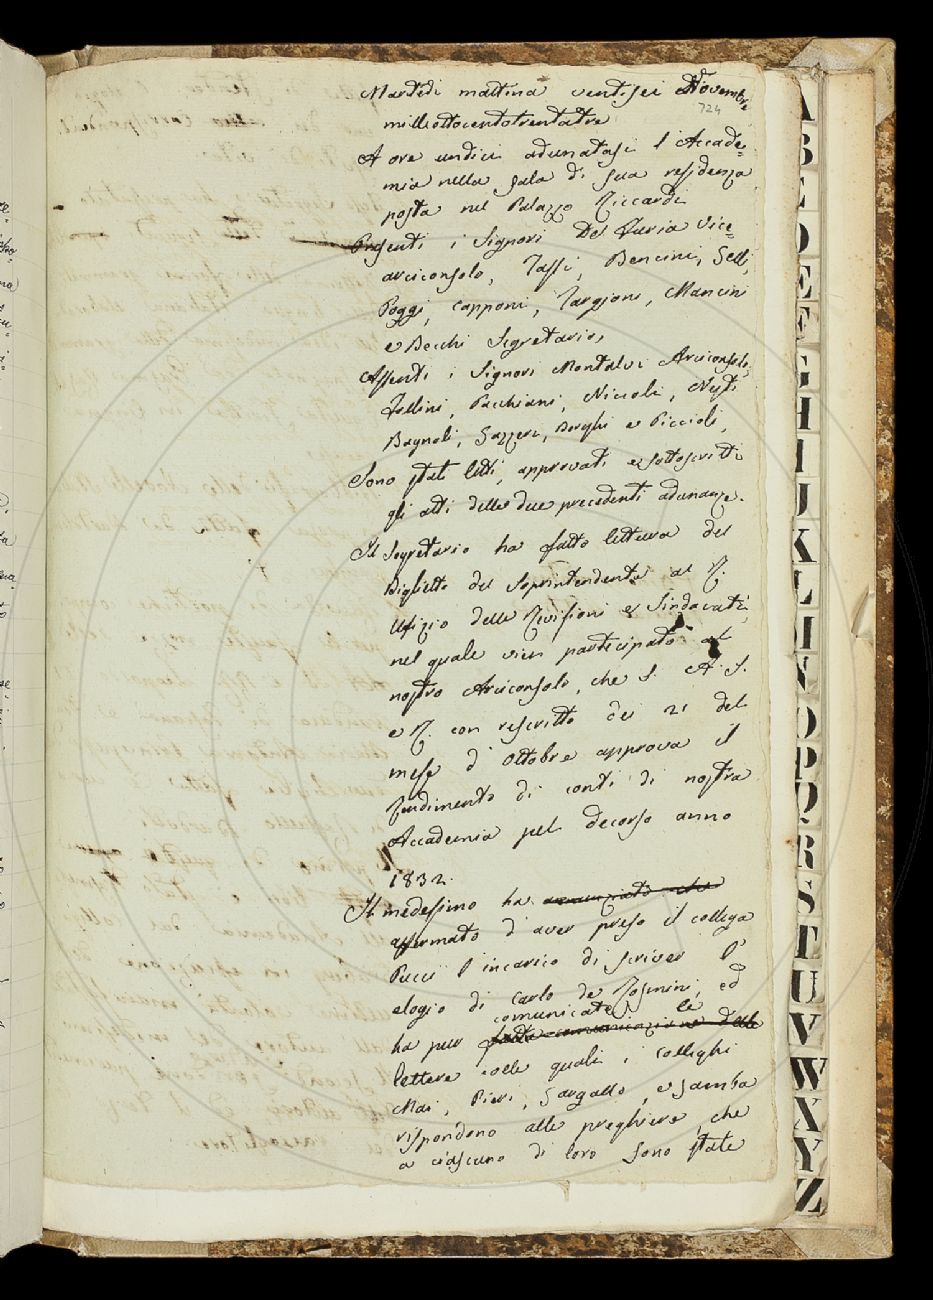 Martedì mattina ventisei Novembre
724
milleottocentotrentatre
A ore undici adunatasi l'Accade=
mia nella sala di sua residenza
posta nel Palazzo Riccardi
Presenti i Signori Del Furia Vice=
arciconsolo, Tassi, Bencini, Selli,
Poggi, Capponi, Targioni, Mancini
e Becchi Segretario,
Assenti i Signori Montalvi Arciconsolo,
Follini, Pacchiani, Niccolini, Nesti
Bagnoli, Gazzeri, Borghi e Piccioli,
Sono stati letti, approvati e sottoscritti
gli atti delle due precedenti adunanze.
Il Segretario ha fatto lettura del
Biglietto del Soprintendente al R.
Ufizio delle Revisioni e Sindacati,
nel quale vien participato al
nostro Arciconsolo, che S. A. I.
e R. con rescritto dei 21 del
mese d'Ottobre approva il
Rendimento di conti di nostra
Accademia pel decorso anno
1832.
Il medesimo ha annunziato che
affermato d'aver preso il collega
Pucci l'incarico di scriver l'
elogio di Carlo de' Rosmini, ed
comunicate le
ha pur fatta comunicazione delle
lettere colle quali i colleghi
Mai, Pieri, Gargallo, e Zamba
rispondono alle preghiere, che
a ciascuno di loro sono state
A
B
D
E
F
G
H
I
J
K
L
N
O
P
Q
R
S
T
U
V
W
X
Y
Z